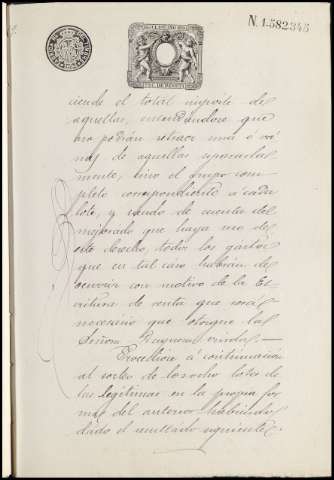 N. 1.582,345
ciende el total importe de
aquellas, entendiéndose que
no podrán retraer una ó va-
rias de aquellas separada-
mente, sino el grupo com-
pleto correspondiente á cada
lote, y siendo de cuenta del
mejorado que haga uso de
este derecho, todos los gastos
que en tal caso hubieran de
ocurrir con motivo de la Es-
critura de venta que será
necesario que otorgue la
Señora viuda.—
Procedióse á continuación
al sorteo de los ocho lotes de
las legítimas en la propia for-
ma del anterior habiendo
dado el resultado siguiente.